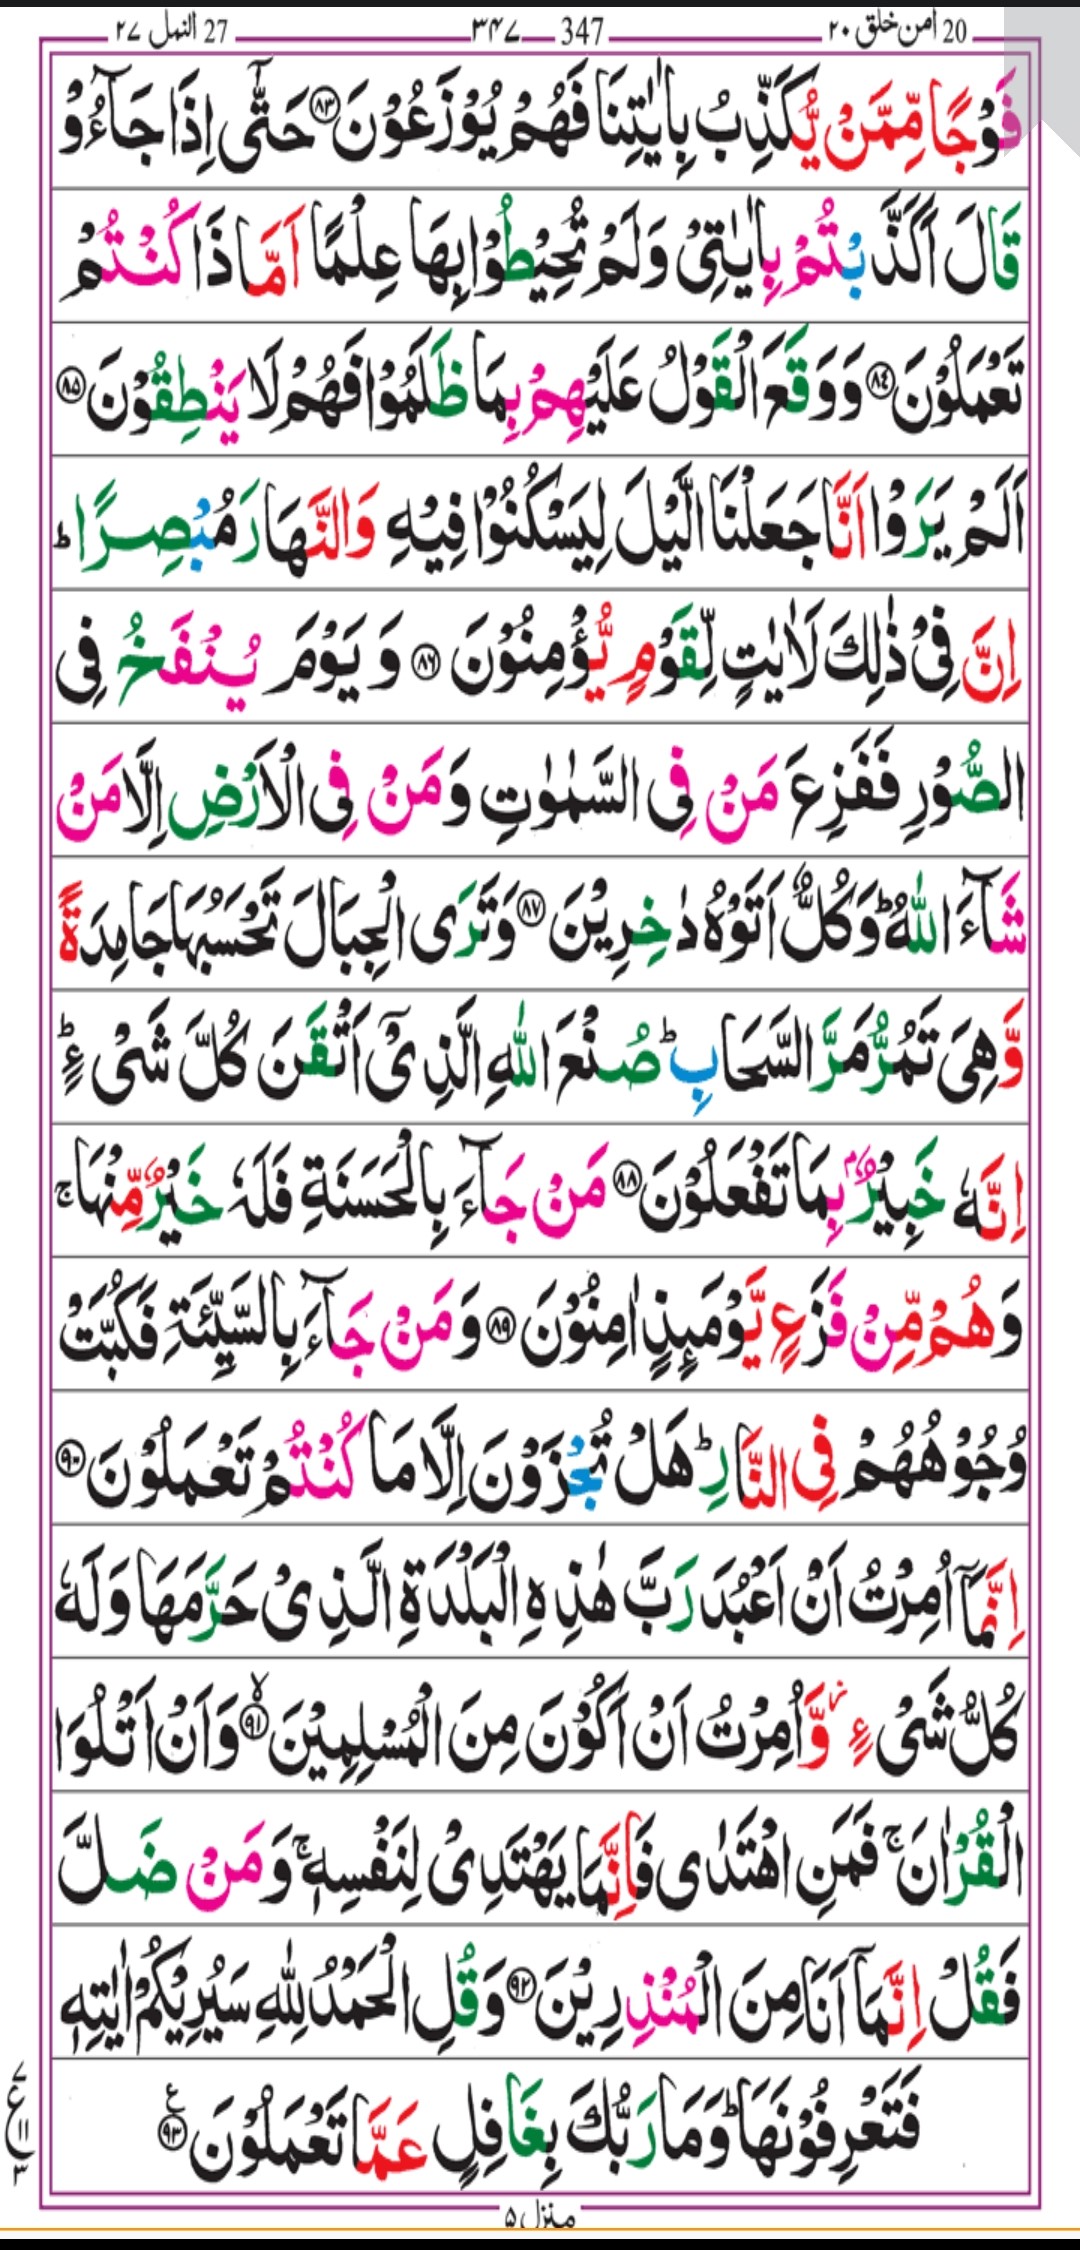 20 امن خلق ۲۰ 347 ۳۴۷ 27 النمل ۲۷
فَوْجًا مِّمَّنْ يُّكَذِّبُ بِاٰيٰتِنَا فَهُمْ يُوْزَعُوْنَ ۸۳ حَتّٰٓى اِذَا جَآءُوْ
قَالَ اَكَذَّبْتُمْ بِاٰيٰتِىْ وَلَمْ تُحِيْطُوْا بِهَا عِلْمًا اَمَّا ذَا كُنْتُمْ
تَعْمَلُوْنَ ۸۴ وَوَقَعَ الْقَوْلُ عَلَيْهِمْ بِمَا ظَلَمُوْا فَهُمْ لَا يَنْطِقُوْنَ ۸۵
اَلَمْ يَرَوْا اَنَّا جَعَلْنَا الَّيْلَ لِيَسْكُنُوْا فِيْهِ وَالنَّهَارَ مُبْصِرًا ؕ
اِنَّ فِىْ ذٰلِكَ لَاٰيٰتٍ لِّقَوْمٍ يُّؤْمِنُوْنَ ۸۶ وَ يَوْمَ يُنْفَخُ فِى
الصُّوْرِ فَفَزِعَ مَنْ فِى السَّمٰوٰتِ وَمَنْ فِى الْاَرْضِ اِلَّا مَنْ
شَآءَ اللّٰهُ ؕ وَكُلٌّ اَتَوْهُ دٰخِرِيْنَ ۸۷ وَتَرَى الْجِبَالَ تَحْسَبُهَا جَامِدَةً
وَّهِىَ تَمُرُّ مَرَّ السَّحَابِ ؕ صُنْعَ اللّٰهِ الَّذِىْٓ اَتْقَنَ كُلَّ شَىْءٍ ؕ
اِنَّهٗ خَبِيْرٌۢ بِمَا تَفْعَلُوْنَ ۸۸ مَنْ جَآءَ بِالْحَسَنَةِ فَلَهٗ خَيْرٌ مِّنْهَا ۚ
وَهُمْ مِّنْ فَزَعٍ يَّوْمَىِٕذٍ اٰمِنُوْنَ ۸۹ وَمَنْ جَآءَ بِالسَّيِّئَةِ فَكُبَّتْ
وُجُوْهُهُمْ فِى النَّارِ ؕ هَلْ تُجْزَوْنَ اِلَّا مَا كُنْتُمْ تَعْمَلُوْنَ ۹۰
اِنَّمَاۤ اُمِرْتُ اَنْ اَعْبُدَ رَبَّ هٰذِهِ الْبَلْدَةِ الَّذِىْ حَرَّمَهَا وَلَهٗ
كُلُّ شَىْءٍ وَّاُمِرْتُ اَنْ اَكُوْنَ مِنَ الْمُسْلِمِيْنَ ۙ ۹۱ وَاَنْ اَتْلُوَا
الْقُرْاٰنَ ۚ فَمَنِ اهْتَدٰى فَاِنَّمَا يَهْتَدِىْ لِنَفْسِهٖ ۚ وَمَنْ ضَلَّ
فَقُلْ اِنَّمَاۤ اَنَا مِنَ الْمُنْذِرِيْنَ ۹۲ وَقُلِ الْحَمْدُ لِلّٰهِ سَيُرِيْكُمْ اٰيٰتِهٖ
فَتَعْرِفُوْنَهَا ؕ وَمَا رَبُّكَ بِغَافِلٍ عَمَّا تَعْمَلُوْنَ ۹۳ ع
۷ ع ۱۱ ۳
منزل ۵